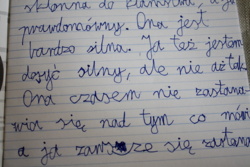 skłonna do kłamstwa, a ja
prawdomówny. Ona jest
bardzo silna. Ja też jestem
dosyć silny, ale nie aż tak.
Ona czasem nie zastana
wia się nad tym co mówi
a ja zawsze się zastan